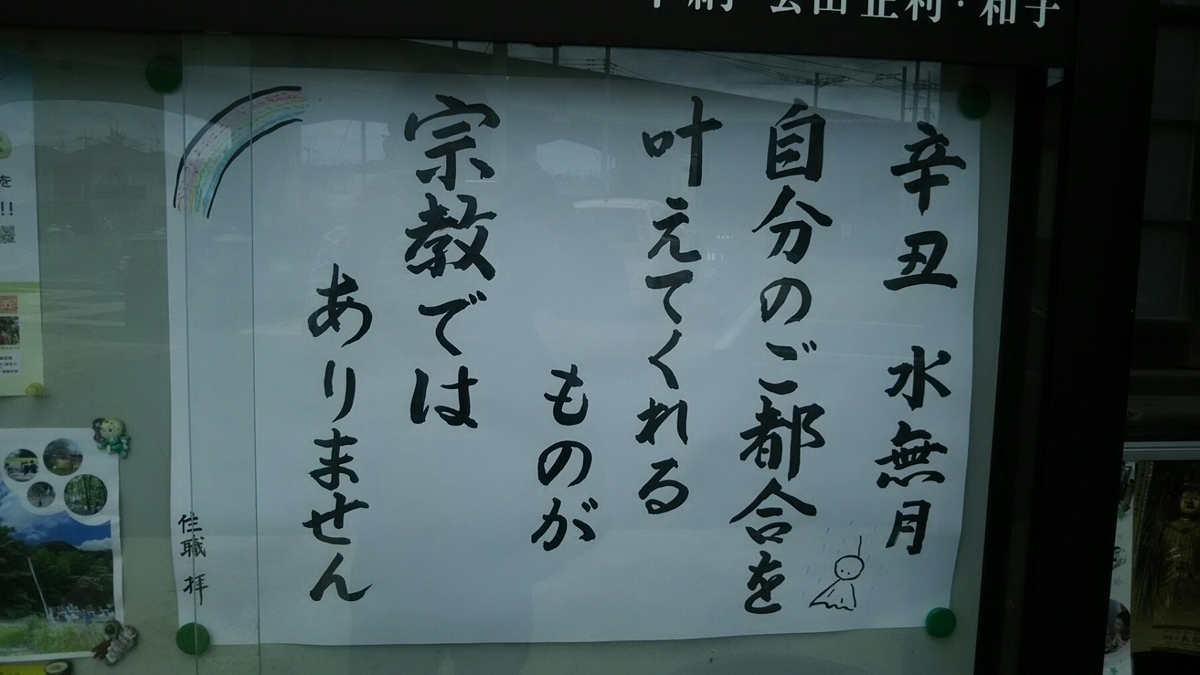 辛丑 水無月
自分のご都合を
叶えてくれる
ものが
宗教では
ありません
住職 拝
正利・和子
を
!!